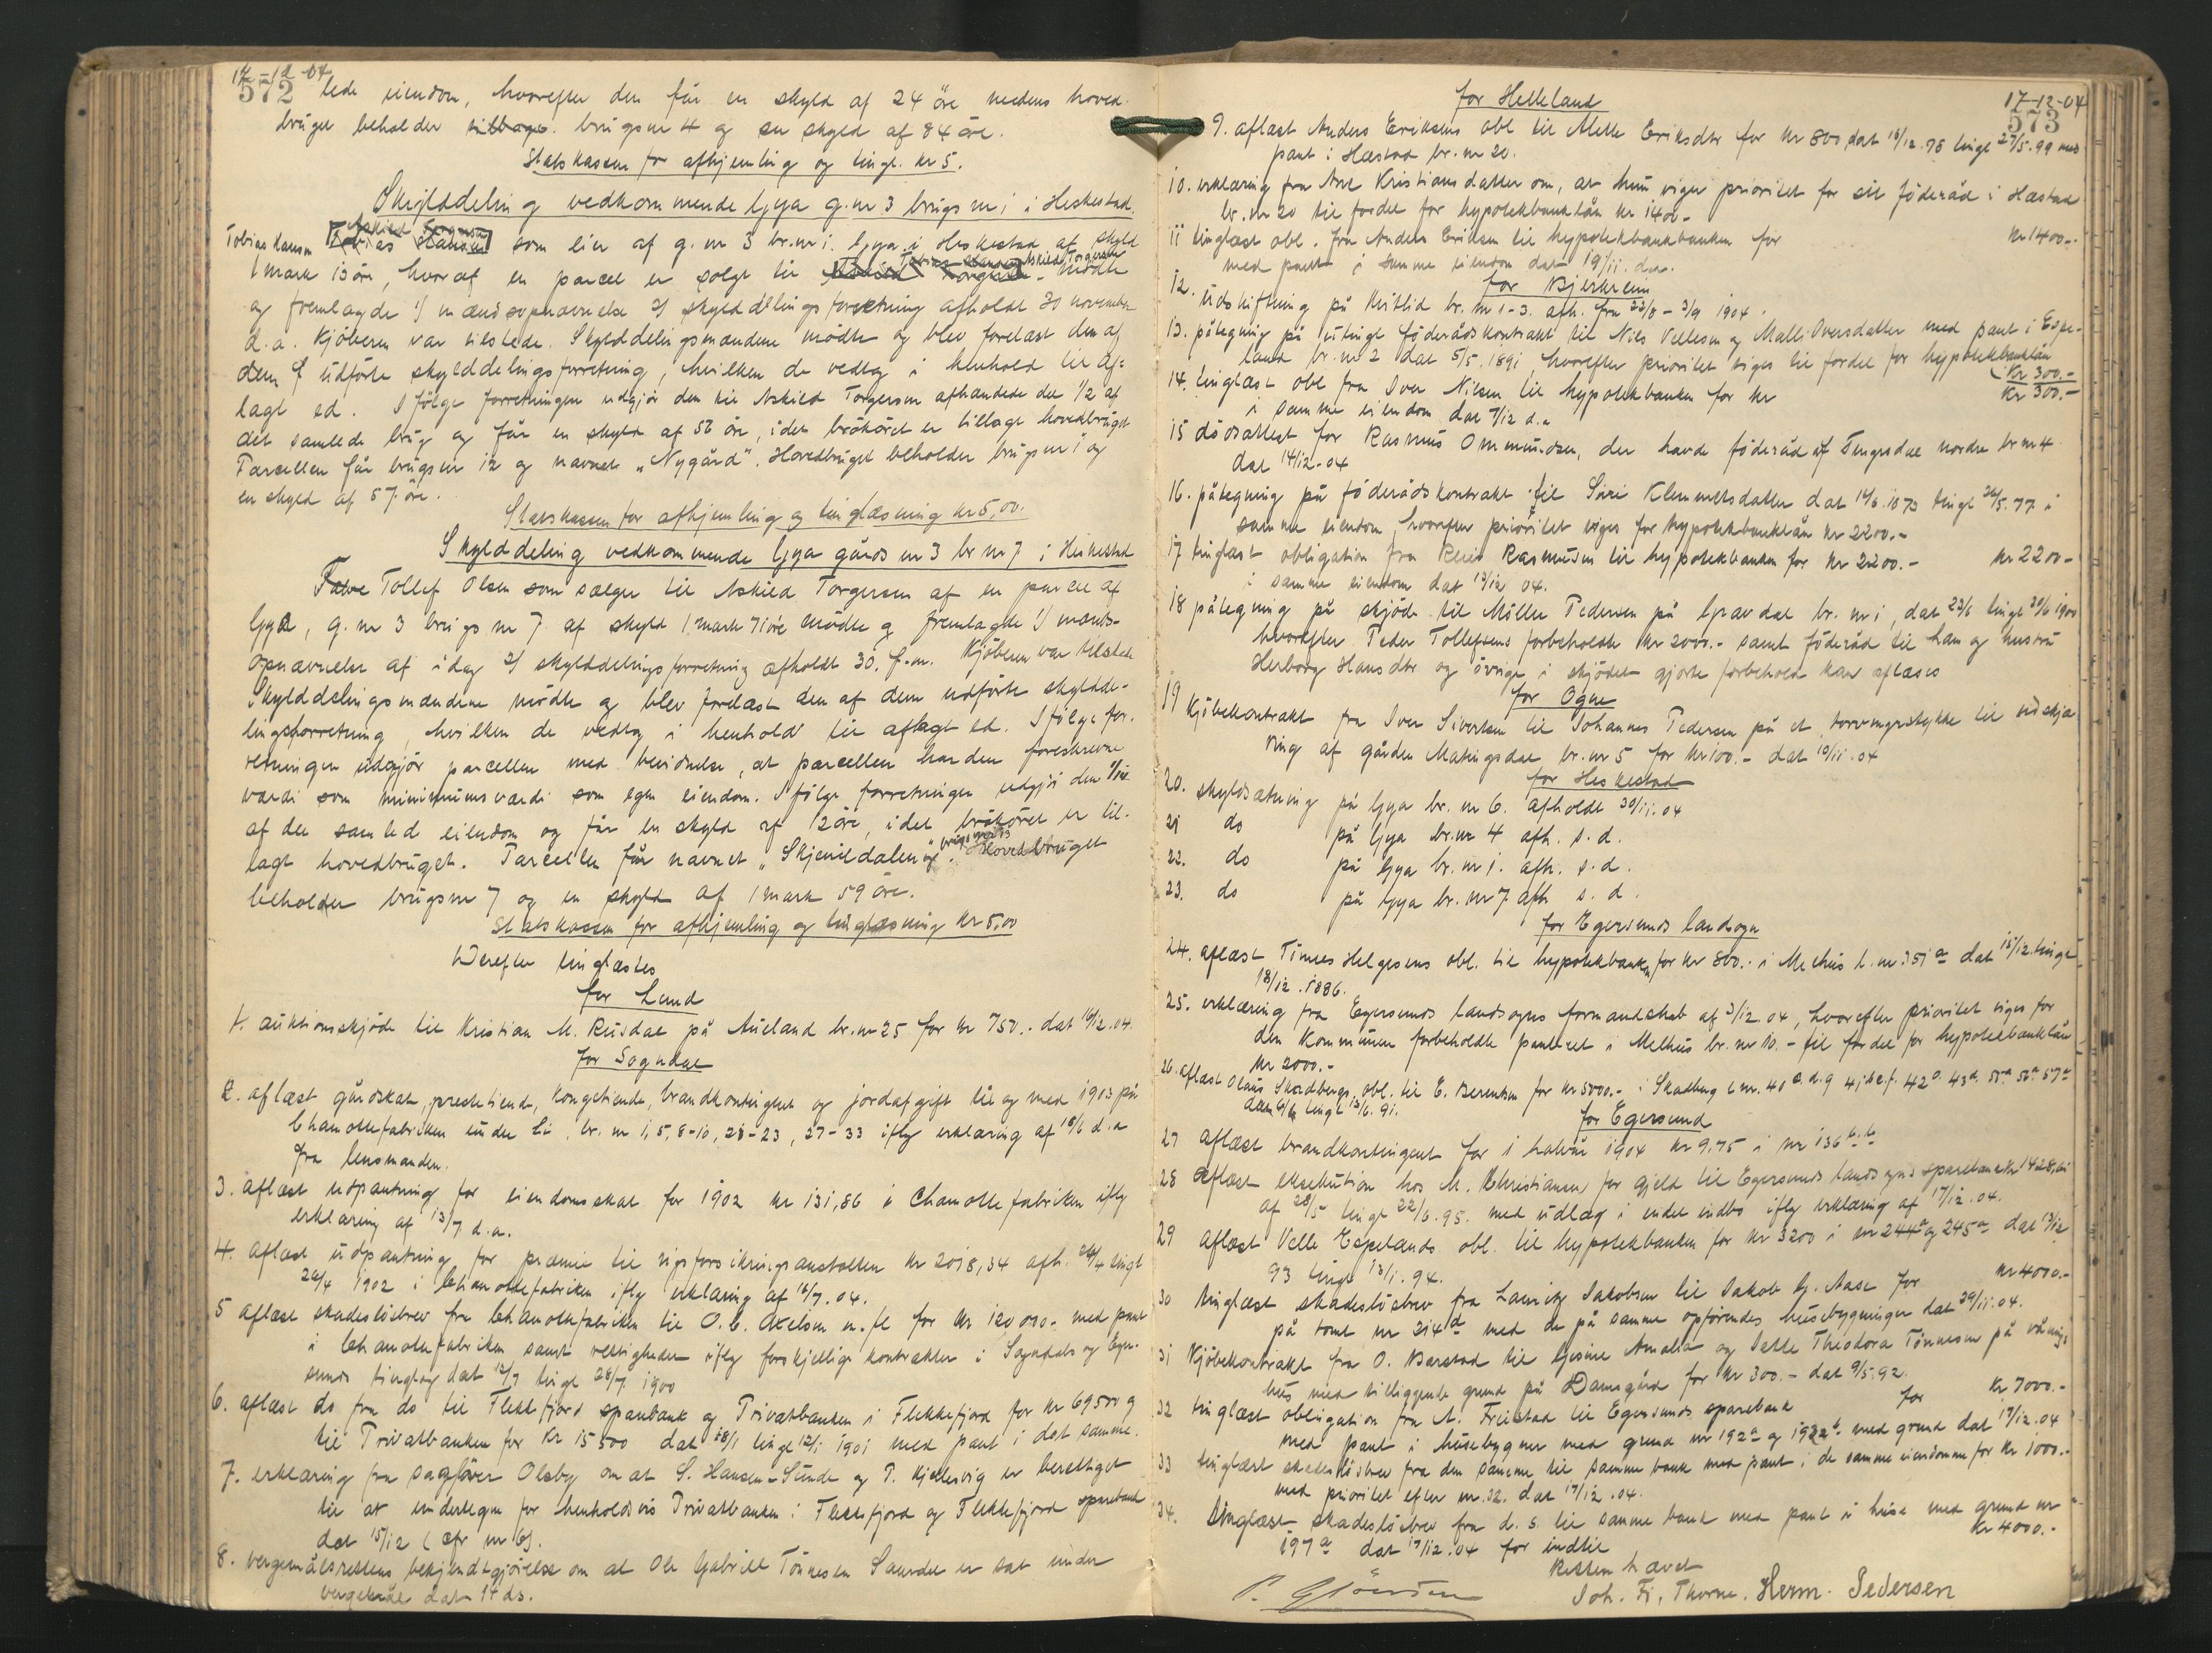 17-12-04
572
lede eiendom, hvorefter den får en skyld af 24 öre medens hoved-
brüget beholder tilbage brugsnr 4 og en skyld af 84 öre.
Statskassen for afhjemling og tingl. kr 5.
Skylddeling vedkommende Gya g.nr 3 brugs nr 1 i Heskestad.
Tobias Hansen som eier af g. nr 3 br.nr 1. Gya i Heskestad af skyld
1 mark 13 öre, hvoraf en parcel er solgt til Askild Torgersen mödte
og fremlagde 1/ mændsopnævnelse 2/ skylddelingsforretning afholdt 30 november
d.a. Kjöberen var tilstede. Skylddelingsmændene mödte og blev forelæst den af
dem udförte skylddelingsforretning, hvilken de vedtog i henhold til af-
lagt ed. I fölge forretningen udgjör den til Askild Torgersen afhændede del 1/2 af
det samlede brug og får en skyld af 56 öre, idet brököret er tillagt hovedbrüget
Parcellen får brugsnr 12 og navnet „Nygård". Hovedbrüget beholder brugsnr 1 og
en skyld af 57 öre.
Statskassen for afhjemling og tinglæsning kr 5,00.
Skylddeling vedkommende Gya gårds nr 3 br nr 7 i Heskestad
Tollef Olsen som sælger til Askild Torgersen af en parcel af
Gya, g. nr 3 brugs nr 7 af skyld 1 mark 71 öre mödte og fremlagde 1/ mænds-
opnævnelse af idag 2/ skylddelingsforretning afholdt 30. f.m. Kjöberen var tilstede
Skylddelingsmændene mödte og blev forelæst den af dem udförte skyldde-
lingsforretning, hvilken de vedtog i henhold til aflagt ed. I fölge for-
retningen udgjör parcellen med bevidnelse, at parcellen har den foreskrevne
værdi som minimumsværdi som egen eiendom. I fölge forretningen udgjör den
af den samled eiendom og får en skyld af 12 öre, idet brököret er til-
lagt hovedbrüget. Parcellen får navnet „Skjerildalen" og brugsnr 13 Hovedbrüget
beholder brugsnr 7 og en skyld af 1 mark 59 öre.
Statskassen for afhjemling og tinglæsning kr 5,00
Derefter tinglæstes
for Lund
1. auktionsskjöde til Kristian M. Rusdal på Aueland br.nr 25 for kr 750.- dat 16/12.04.
for Sogndal
2. aflæst gårdskat, prestetiende, kongetiende, brandkontingent og jordafgift til og med 1903 på
Chamottefabriken under Li, br. nr 1, 5, 8-10, 20-23, 27-33 iflg erklæring af 18/6 d.a
fra lensmanden.
3. aflæst udpantning for eiendomsskat for 1902 kr 131,86 i Chamottefabriken iflg
erklæring af 13/7 d.a.
4. aflæst udpantning for præmie til rigsforsikringsanstalten kr 2018,34 afh. 24/4 tingl
26/4 1902 i Chamottefabriken iflg erklæring af 16/7.04.
5 aflæst skadeslösbrev fra Chamottefabriken til O.C. Axelsen m.fl for kr 120 000.- med pant
i Chamottefabriken samt rettigheder iflg forskjellige kontrakter i Sogndals og Eger-
sunds tinglag dat 12/7 tingl 28/7 1900
6. aflæst do fra do til Flekkefjord sparebank og Privatbanken i Flekkefjord for kr 69500 og
til Privatbanken for kr 15500 dat 18/1 tingl 12/1 1901 med pant i det samme.
7. erklæring fra sagförer Olsby om at S. Hansen-Sunde og P. Kjellesvig er berettiget
til at undertegne for henholdsvis Privatbanken i Flekkefjord og Flekkefjord sparebank
dat 15/12 (cfr nr 6).
8. vergemålsrettens bekjendtgjörelse om at Ole Gabriel Tönnesen Saurdal er sat under
vergemål dat 14 ds.
17-12-04
573
for Helleland
9. aflæst Anders Eriksens obl til Mette Eriksdtr for kr 800 dat 16/12.98 tingl 27/5.99 med
pant i Hæstad br. nr 20.
10. erklæring fra Ane Kristiansdatter om, at hun viger prioritet for sit föderåd i Hæstad
br. nr 20 til fordel for hypotekbanklån kr 1400.-
11 tinglæst obl. fra Anders Eriksen til hypotekbanken for kr 1400.-
med pant i samme eiendom dat 19/11. da.
for Bjerkreim
12. Udskiftning på Kvitlid br. nr 1-3. afh. fra 22/8 - 3/9 1904.
13. påtegning på utingl föderådskontrakt til Nils Vellesen og Malli Oversdatter med pant i Espe-
land br.nr 2 dat 5/5.1891, hvorefter prioritet viges til fordel for hypotekbanklån
kr 300.-
14. tinglæst obl fra Iver Nilsen til hypotekbanken for kr kr 300.-
i samme eiendom dat 7/12 d.a
15 dödsattest for Rasmus Ommundsen, der havde föderåd af Tengesdal nordre br nr 4
dat 14/12-04
16. påtegning på föderådskontrakt til Siri Klemmetsdatter dat 14/6.1873 tingl 26/5.77 i
samme eiendom hvorefter prioritet viges for hypotekbanklån kr 2200.-
17 tinglæst obligation fra Reier Rasmusen til hypotekbanken for kr 2200.- kr 2200-
i samme eiendom dat 13/12 04.
18 påtegning på skjöde til Möller Pedersen på Gravdal br. nr 1, dat 23/6 tingl 29/6 1900
hvorefter Peder Tollefsens forbeholdte kr 2000.- samt föderåd til ham og hustru
Herborg Hansdtr og övrige i skjödet gjorte forbehold kan aflæses
for Ogne
19 Kjöbekontrakt fra Iver Sivertsen til Johannes Pedersen på et torvmyrstykke til udskjæ
ring af gården Matingsdal br. nr 5 for kr 100.- dat 10/11.04
for Heskestad
20. skyldsætning på Gya br. nr 6. afholdt 30/11.04
21 do på Gya br.nr 4 afh. s.d.
22. do på Gya br. nr 1. afh. s.d.
23. do på Gya br. nr 7 afh s.d.
for Egersunds landsogn
24. aflæst Tönnes Helgesens obl. til hypotekbanken for kr 860.- i Melhus l.nr 351a dat 11/12 tingl
18/12.1886.
25. erklæring fra Egersunds landsogns formandskab af 3/12.04, hvorefter prioritet viges for
den kommunen forbeholdte panteret i Melhus br. nr 10.- til fordel for hypotekbanklån
kr 2000.-
26. aflæst Olaus Skadbergs obl. til E. Berentsen for kr 5000.- i Skadberg l nr. 40 c.d.g 41 b.e.f. 42a 43a 55a 56a 57a
dat 6/6 tingl 13/6.91.
for Egersund
27 aflæst brandkontingent for 1 halvår 1904 kr 9,75 i nr 136 b.
28 aflæst eksekution hos M. Christiansen for gjeld til Egersunds landsogns sparebank kr
af 28/5 tingl 22/6.95. med udlæg i endel indbo iflg erklæring af 17/12.04.
29 aflæst Velle Espelands obl. til hypotekbanken for kr 3200 i nr 244a og 245a dat 13/12
93 tingl 13/1.94.
30 tinglæst skadeslösbrev fra Lauritz Jakobsen til Jakob G. Aase for kr 4000.-
på tomt nr 214d med de på samme opförendes husebygninger dat 29/11.04.
31 Kjöbekontrakt fra O. Barstad til Gesine Amalia og Jette Theodora Tönnesen på vånings
hus med tilliggende grund på Damsgård for kr 300.- dat 9/5.92.
32 tinglæst obligation fra A. Freistad til Egersunds sparebank for kr 7000.-
med pant i husebygner med grund nr 192a og 192b med grund dat 17/12.04
33 tinglæst skadeslösbrev fra den samme til samme bank med pant i de samme eiendomme for kr 1000.-
med prioritet efter nr.32. dat 17/12.04.
34. tinglæst skadeslösbrev fra d.s. til samme bank med pant i huse med grund nr
197a dat 17/12.04 for indtil kr 4000.-
Retten hævet
Joh. Fr. Thorne. Herm. Pedersen